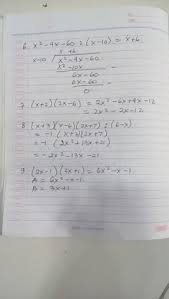 6. x² - 4x - 60 : (x-10) = x+6
x+6
x-10 x² - 4x - 60
x² - 10x
6x - 60
6x - 60
0
7. (x+2)(2x-6) = 2x² - 6x + 4x - 12
= 2x² - 2x - 12
8. (x+3)(x-6)(2x+7) : (6-x)
= -1. (x+3)(2x+7)
= -1. (2x² + 13x + 21)
= -2x² - 13x - 21
9. (2x-1)(3x+1) = 6x² - x - 1
A = 6x² - x - 1
B = 3x+1